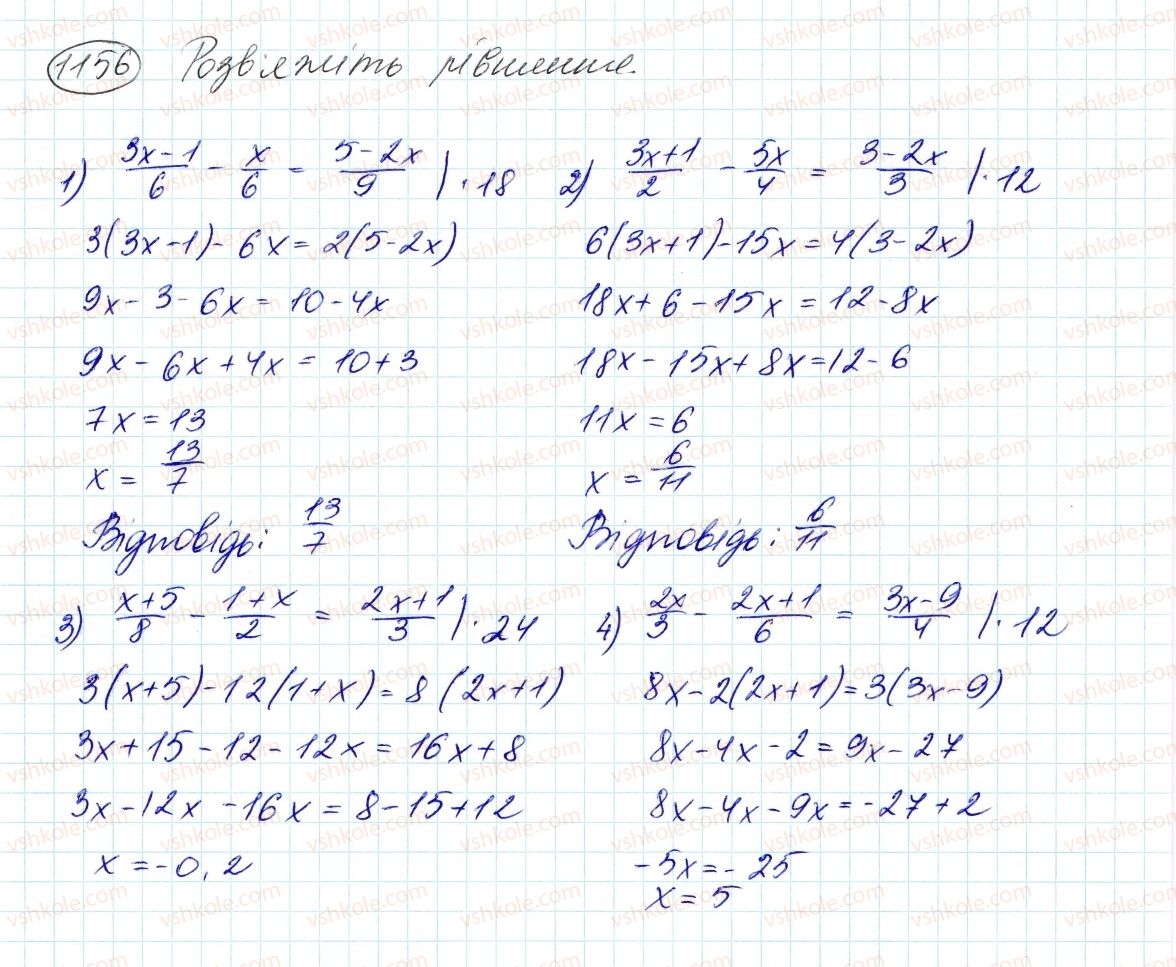 1156 Розвяжіть рівняння.
1) (3x-1)/6 - x/6 = (5-2x)/9 |·18
3(3x-1)-6x=2(5-2x)
9x-3-6x=10-4x
9x-6x+4x=10+3
7x=13
x=13/7
Відповідь: 13/7
2) (3x+1)/2 - 5x/4 = (3-2x)/3 |·12
6(3x+1)-15x=4(3-2x)
18x+6-15x=12-8x
18x-15x+8x=12-6
11x=6
x=6/11
Відповідь: 6/11
3) (x+5)/8 - (1+x)/2 = (2x+1)/3 |·24
3(x+5)-12(1+x)=8(2x+1)
3x+15-12-12x=16x+8
3x-12x-16x=8-15+12
x=-0,2
4) 2x/3 - (2x+1)/6 = (3x-9)/4 |·12
8x-2(2x+1)=3(3x-9)
8x-4x-2=9x-27
8x-4x-9x=-27+2
-5x=-25
x=5